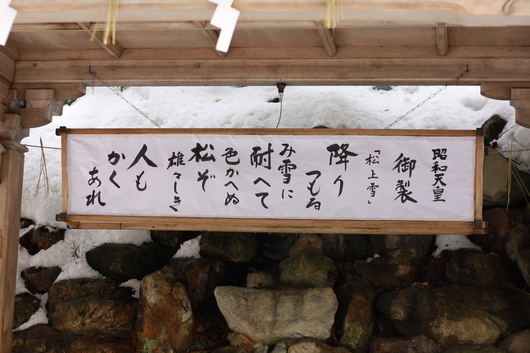 昭和天皇
御製
「松上雪」
降り
つもる
み雪に
耐へて
色かへぬ
松ぞ
雄々しき
人も
かく
あれ